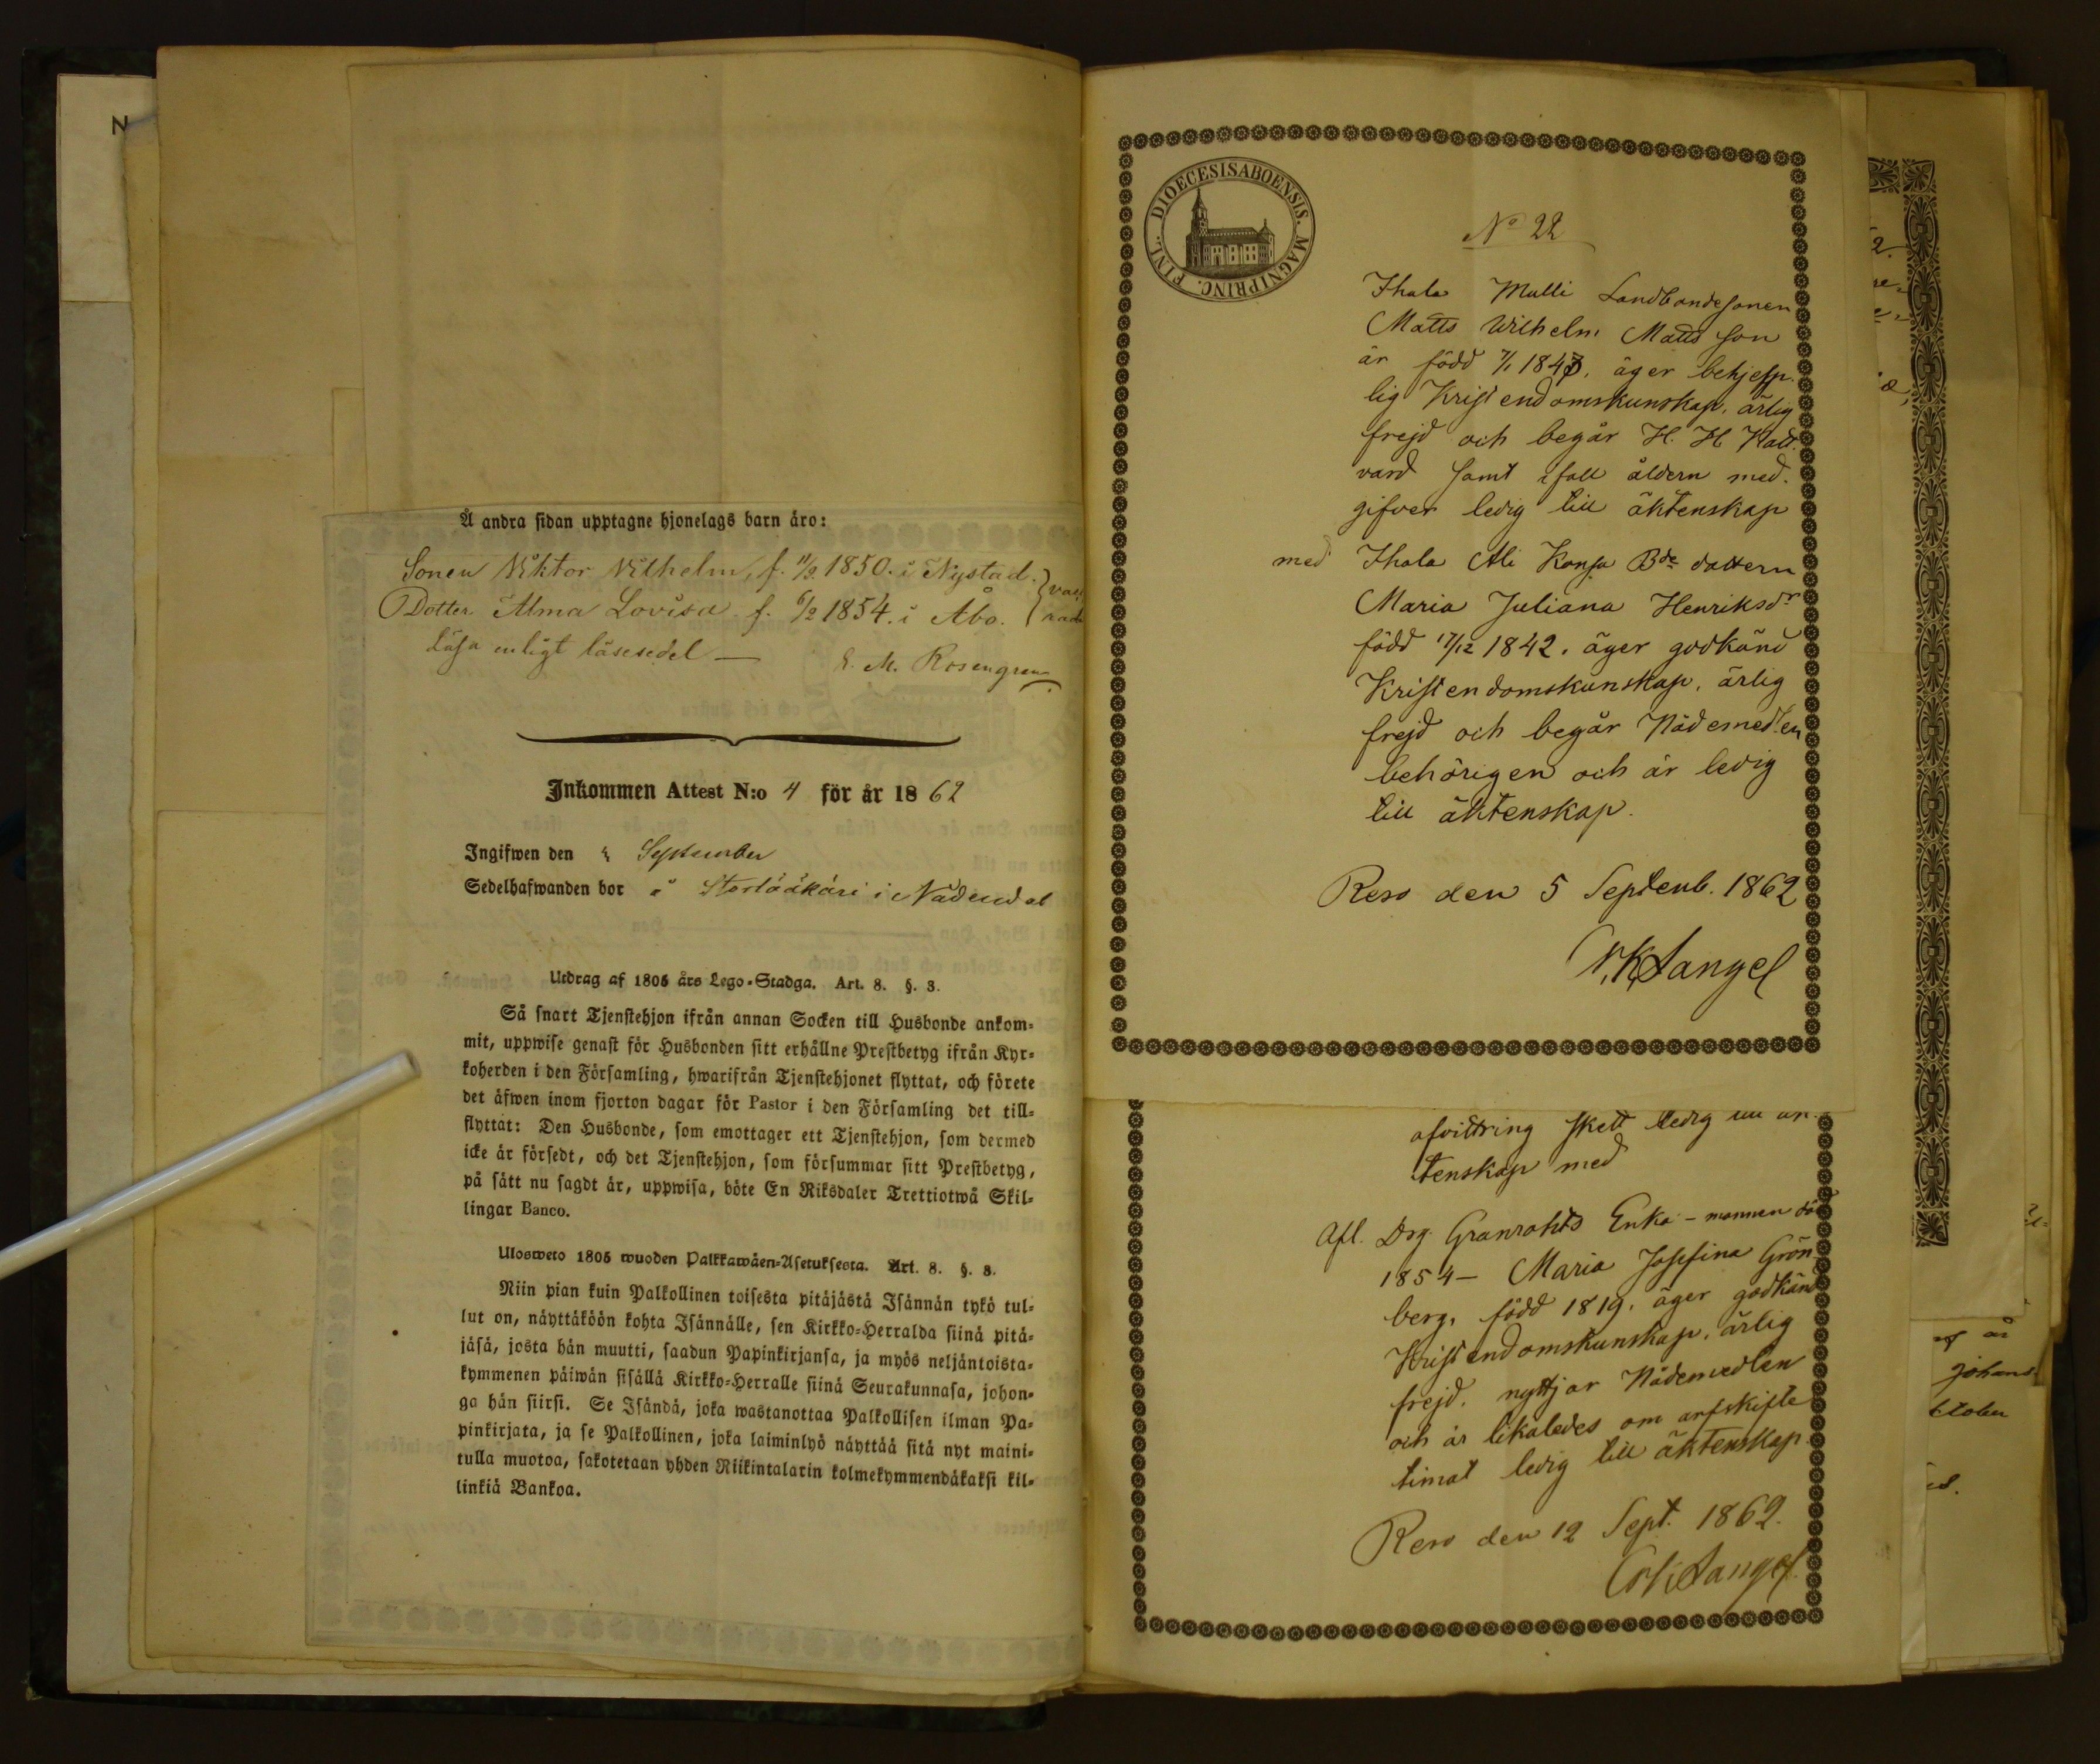 N
Å andra sidan upptagne hjonelags barn äro:
Sonen Viktor Vilhelm, f. 11/9 1850. i Nystad.
Dotter Alma Lovisa f. 6/2 1854. i Åbo.
Läsa enligt läsesedel —
E. M. Rosengren
Inkommen Attest N:o 4 för år 1862
Ingifwen den September
Sedelhafwanden bor å i Nådendal
Utdrag af 1805 års Lego-Stadga. Art. 8. §. 3.
Så snart Tjenstehjon ifrån annan Socken till Husbonde ankom-
mit, uppwise genast för Husbonden sitt erhållne Prestbetyg ifrån Kyr-
koherden i den Församling, hwarifrån Tjenstehjonet flyttat, och förete
det äfwen inom fjorton dagar för Pastor i den Församling det till-
flyttat: Den Husbonde, som emottager ett Tjenstehjon, som dermed
icke är försedt, och det Tjenstehjon, som försummar sitt Prestbetyg,
på sätt nu sagdt är, uppwisa, böte En Riksdaler Trettiotwå Skil-
lingar Banco.
Ulosweto 1805 wuoden Palkkawäen-Asetuksesta. Art. 8. §. 3.
Niin pian kuin Palkollinen toisesta pitäjästä Isännän tykö tul-
lut on, näyttäköön kohta Isännälle, sen Kirkko-Herralda siinä pitä-
jäsä, josta hän muutti, saadun Papinkirjansa, ja myös neljäntoista-
kymmenen päiwän sisällä Kirkko-Herralle siinä Seurakunnasa, johon-
ga hän siirsi. Se Isändä, joka wastanottaa Palkollisen ilman Pa-
pinkirjata, ja se Palkollinen, joka laiminlyö näyttää sitä nyt maini-
tulla muotoa, sakotetaan yhden Riikintalarin kolmekymmendäkaksi kil-
linkiä Bankoa.
DIOECESIS ABOENSIS. MAGNI PRINC. FINL.
No 22
Ihala Mulli Landbondesonen
Matts Wilhelm Matts son
är född 7/1 184, äger behjelp-
lig Kristendomskunskap, ärlig
frejd och begår H. H. Natt-
vard samt ifall åldern med-
gifver ledig till äktenskap
med Ihala Ali Konsa Bde dottern
Maria Juliana Henriksdr
född 17/12 1842. äger godkänd
Kristendomskunskap, ärlig
frejd och begår Nådemedlen
behörigen och är ledig
till äktenskap.
Reso den 5 Septemb. 1862
Langel
afvittring skett ledig till äk-
tenskap med
Afl. Drg. Granrohts Enka – mannen dö
1854 – Maria Josefina Grön-
berg, född 1819. äger godkänd
Kristendomskunskap, ärlig
frejd. nyttjar Nådemedlen
och är likaledes om arfskifte
timat ledig till äktenskap.
Reso den 12 Sept. 1862.
Langel.
2.
af år
Johans
ktober